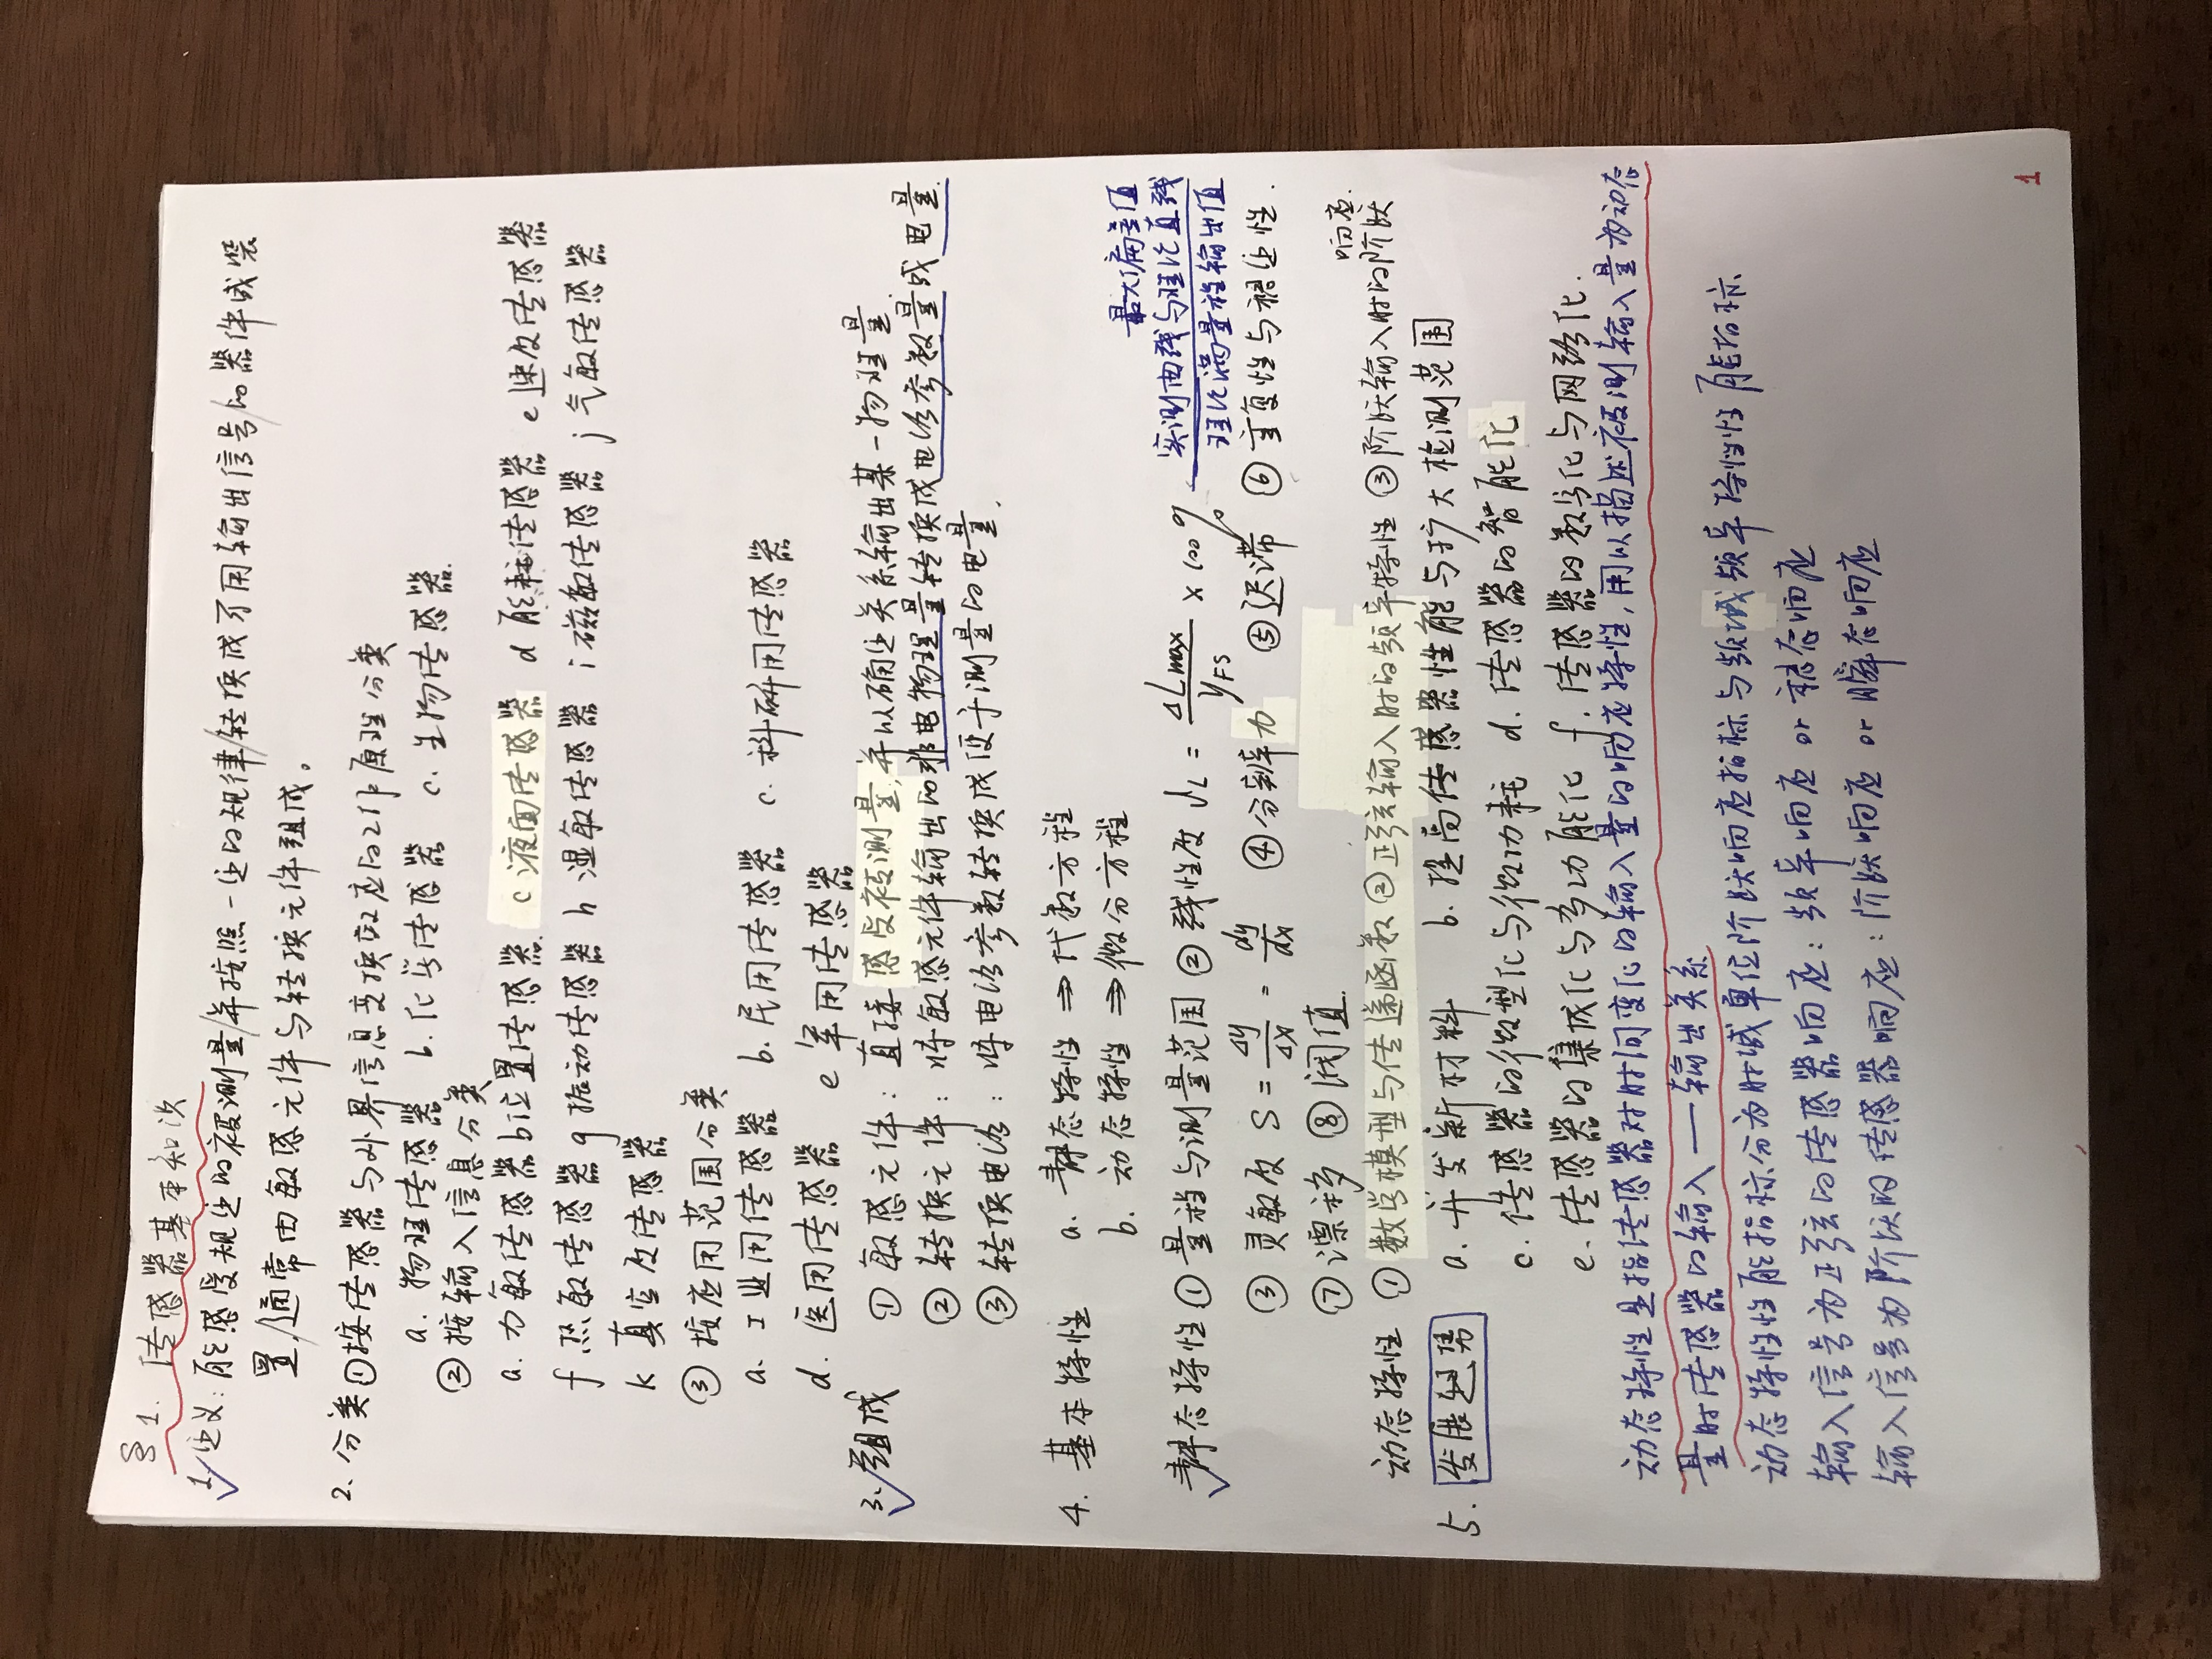 §1. 传感器基本知识
1. 定义: 能感受规定的被测量/并按照一定的规律/转换成可用输出信号/的器件或装
置,/通常由敏感元件与转换元件组成。
2. 分类①按传感器与外界信息变换效应的工作原理分类
a. 物理传感器 b. 化学传感器 c. 生物传感器.
② 按输入信息分类
a. 力敏传感器 b位置传感器. c 液面传感器 d 能耗传感器 e 速度传感器
f 热敏传感器 g 振动传感器 h 湿敏传感器 i 磁敏传感器 j 气敏传感器
k 真空度传感器
③ 按应用范围分类
a. 工业用传感器 b. 民用传感器 c. 科研用传感器
d. 医用传感器 e 军用传感器
3. 组成 ① 敏感元件: 直接感受被测量,并以确定关系输出某一物理量.
② 转换元件: 将敏感元件输出的非电物理量转换成电路参数量或电量.
③ 转换电路: 将电路参数转换成便于测量的电量.
4. 基本特性 a. 静态特性 ⇒ 代数方程
b. 动态特性 ⇒ 微分方程
最大偏差值
静态特性 ① 量程与测量范围 ② 线性度 δL = ΔLmax/yFS × 100% 实测曲线与理论直线
理论满量程输出值
③ 灵敏度 S = Δy/Δx = dy/dx ④ 分辨力 ⑤ 迟滞 ⑥ 重复性与稳定性.
⑦ 漂移 ⑧ 阀值.
响应.
动态特性 ① 数学模型与传递函数 ② 正弦输入时的频率特性 ③ 阶跃输入时的阶跃
5. 发展趋势 a. 开发新材料 b. 提高传感器性能与扩大检测范围
c. 传感器的微型化与微功耗 d. 传感器的智能化
e. 传感器的集成化与多功能化 f. 传感器的数字化与网络化.
动态特性是指传感器对时间变化的输入量的响应特性,用以描述被测输入量为动态
量时传感器的输入——输出关系
动态特性性能指标分为时域单位阶跃响应指标与频域频率特性性能指标
输入信号为正弦的传感器响应: 频率响应 or 稳态响应
输入信号为阶跃的传感器响应: 阶跃响应 or 瞬态响应
1